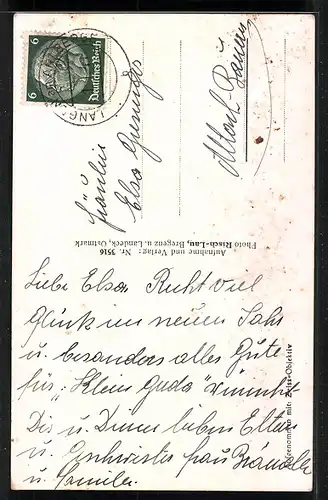 6 Deutsches Reich 6
Fräulein
Else
Aufnahme und Verlag: Nr. 3516
Photo Risch-Lau, Bregenz u. Landeck, Ostmark
Liebe Elsa. Recht viel
Glück im neuen Jahr
u. besonders alles Gute
für „Klein Guda" wünscht
Dir u. Deinen lieben Eltern
u. Geschwister Frau
u. Familie.
Aufgenommen mit: Zeiss-Objektiv